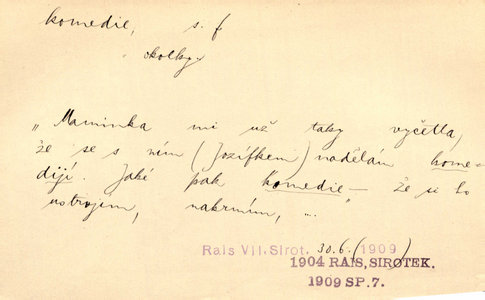 komedie, s. f
okolky.
„Maminka mi už taky vyčetla,
že se s ním (Jozífkem) nadělám kome-
dijí. Jaké pak komedie — že si ho
ustrojem, nakrmím, ... "
Rais VII. Sirot. 30.6. (1909)
1904 RAIS, SIROTEK.
1909 SP. 7.